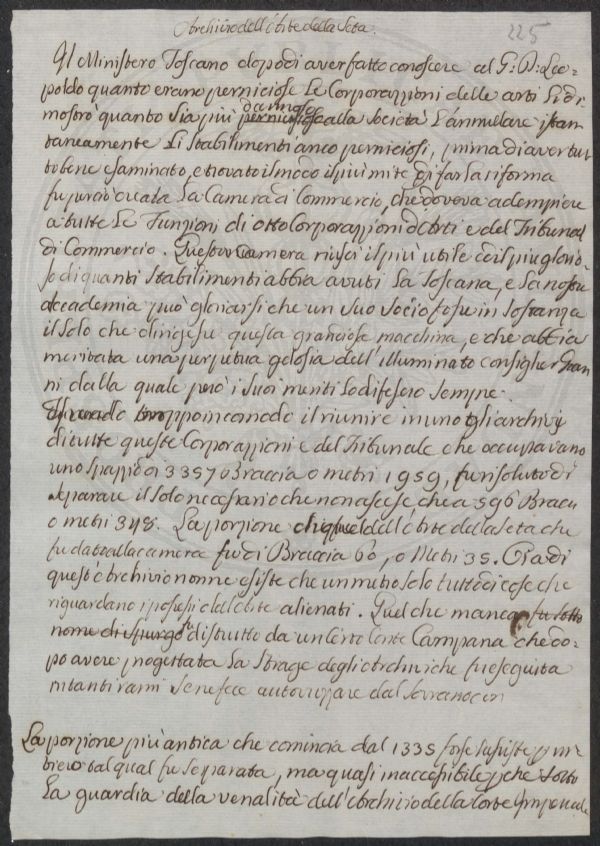 Archivio dell'Arte della Seta.
225
Il Ministero Toscano dopo di aver fatto conoscere al G: D: Leo=
poldo quanto erano perniciose le Corporazzioni delle arti li di=
mostrò quanto sia più perniciosa alla Società l'annullare istan
dannoso
taneamente li stabilimenti anco perniciosi, prima di aver tut
to bene esaminato, e trovato il modo il più mite di far la riforma
fu perciò creata la Camera di Commercio, che doveva adempiere
a tutte le Funzioni di otto Corporazzioni d'Arti e del Tribunal
di Commercio. Questa Camera riuscì il più utile ed il più glorio
so di quanti stabilimenti abbia avuti la Toscana, e la nostra
accademia può gloriarsi che un suo Socio fosse in sostanza
il solo che dirigesse questa grandiosa macchina, e che abbia
meritata una perpetua gelosia dell'illuminato consiglier Gian
ni dalla quale però i suoi meriti lo difesero sempre.
Essendo troppo incomodo il riunire in uno gli archivj
di tutte queste Corporazzioni e del Tribunale che occupavano
uno spazzio di 3357 Braccia o metri 1959, fu risoluto di
separare il solo necessario che non ascese, che a 596 Bracci
o metri 348. La porzione dell'Arte della Seta che
fu data alla camera fu di Braccia 60, o Metri 35. Ora di
quest'Archivio non ne esiste che un metro solo tutto di cose che
riguardano i possessi dell'Arte alienati. Quel che manca fu sotto
nome di spurgo distrutto da un Certo Conte Campana che do=
po avere progettata la strage degli Archivi che fu eseguita
in tanti rami se ne fece autorizzare dal Sovrano
La porzione più antica che comincia dal 1335 forse sussiste
tal qual fu separata, ma quasi inaccessibile sotto
la guardia della venalità dell'Archivio della Corte Imperiale